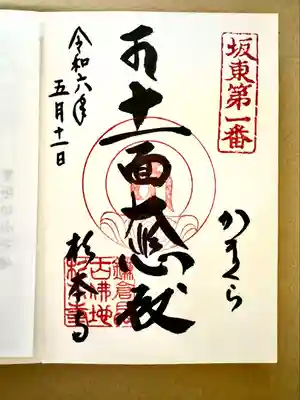 坂東第一番
かまくら
十一面大悲殿
杉本寺
鎌倉最
古佛地
杉本寺
令和六年
五月十一日